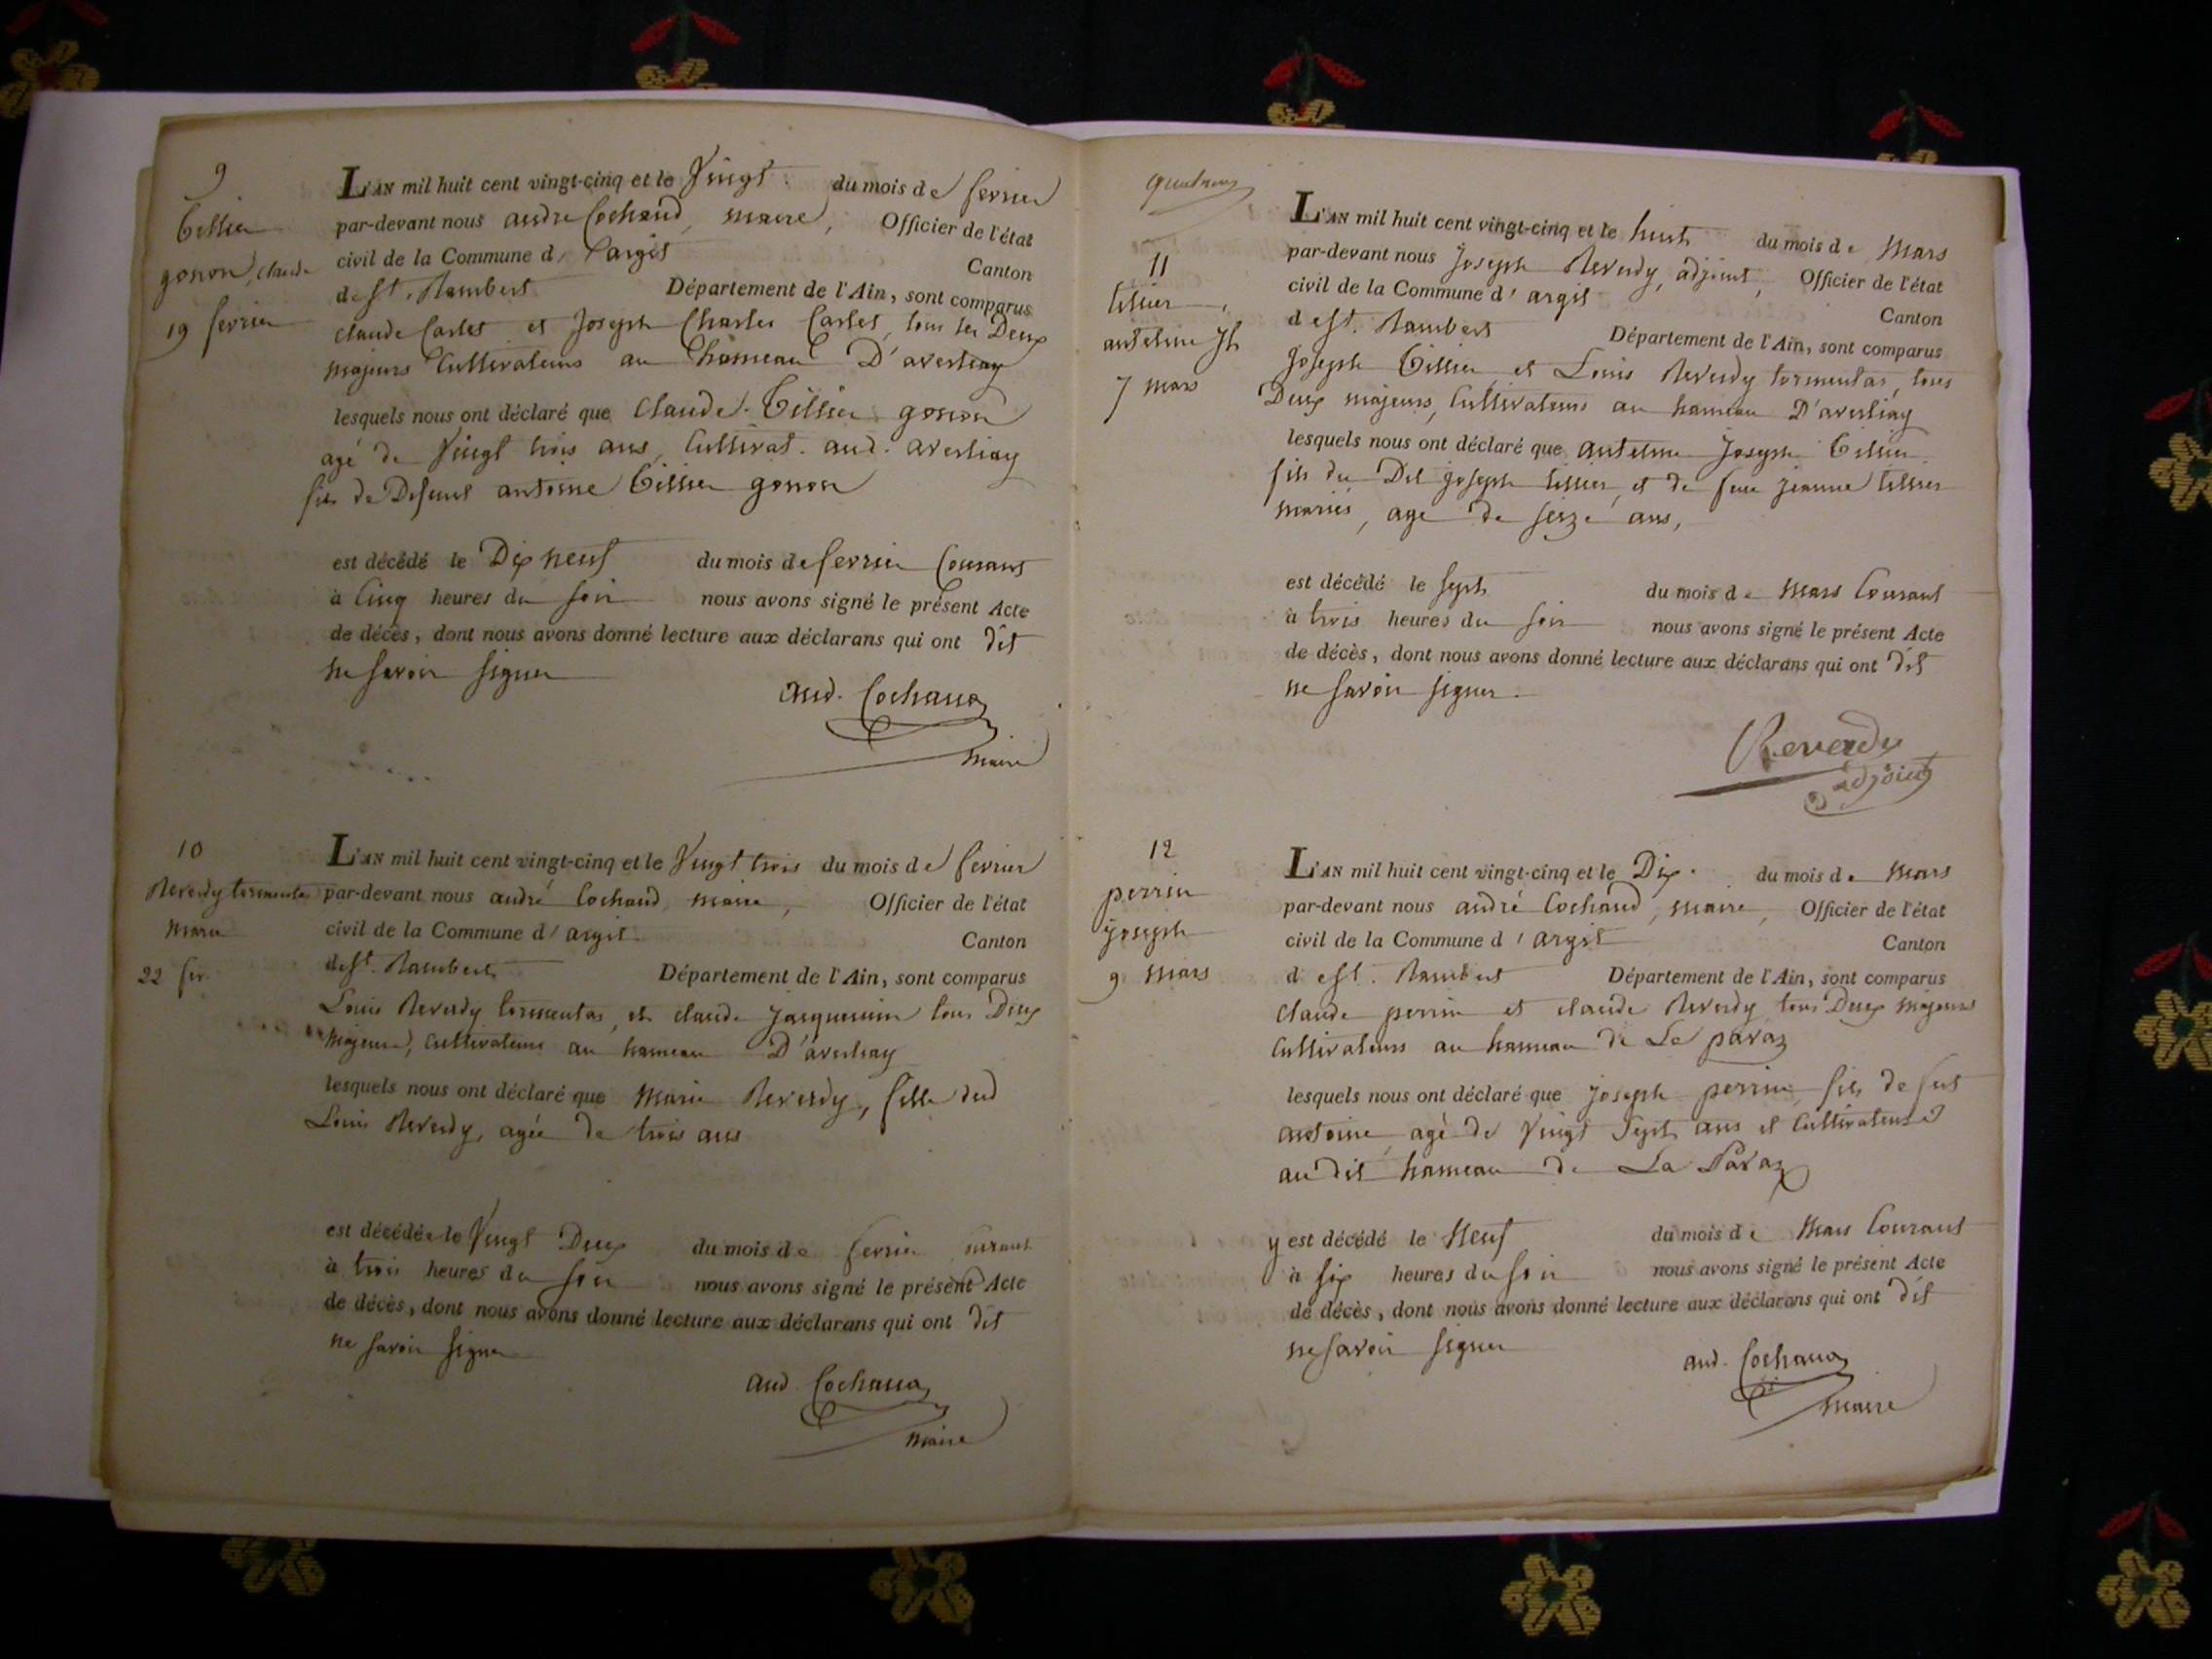 9
Tissier
gonon, claude
19 fevrier
L'AN mil huit cent vingt-cinq et le Vingt du mois de fevrier
par-devant nous andré Cochaud, maire, Officier de l'état
civil de la Commune d'argis Canton
de St. Rambert Département de l'Ain, sont comparus
claude Carlet et Joseph Charles Carlet, tous les Deux
majeurs Cultivateurs au hameau D'averliay
lesquels nous ont déclaré que Claude Tissier gonon
agé de Vingt trois ans, Cultivat. aud. averliay
fils de Defunt antoine Tissier gonon
est décédé le Dix neuf du mois de fevrier Courant
à Cinq heures du soir nous avons signé le présent Acte
de décès, dont nous avons donné lecture aux déclarans qui ont dit
ne savoir signer
and. Cochaud
maire
10
Reverdy tormentas
marie
22 fev.
L'AN mil huit cent vingt-cinq et le Vingt trois du mois de fevrier
par-devant nous andré Cochaud, maire, Officier de l'état
civil de la Commune d'argis Canton
de St. Rambert Département de l'Ain, sont comparus
Louis Reverdy tormentas, et claude Jacquemin tous Deux
majeurs, Cultivateurs au hameau D'averliay
lesquels nous ont déclaré que Marie Reverdy, fille dud
Louis Reverdy, agée de trois ans
est décédée le Vingt Deux du mois de fevrier Courant
à trois heures du soir nous avons signé le présent Acte
de décès, dont nous avons donné lecture aux déclarans qui ont dit
ne savoir signer
and. Cochaud
maire
11
tissier
antelme Jh
7 mars
L'AN mil huit cent vingt-cinq et le huit du mois de Mars
par-devant nous Joseph Reverdy, adjoint, Officier de l'état
civil de la Commune d'argis Canton
de St. Rambert Département de l'Ain, sont comparus
Joseph Tissier et Louis Reverdy tormentas, tous
Deux majeurs, Cultivateurs au hameau D'averliay
lesquels nous ont déclaré que antelme Joseph Tissier
fils du Dit Joseph tissier, et de feue jeanne tissier
mariés, agé de seize ans,
est décédé le sept du mois de Mars Courant
à trois heures du soir nous avons signé le présent Acte
de décès, dont nous avons donné lecture aux déclarans qui ont dit
ne savoir signer.
Reverdy
adjoint
12
perrin
joseph
9 Mars
L'AN mil huit cent vingt-cinq et le Dix du mois de Mars
par-devant nous andré Cochaud, maire, Officier de l'état
civil de la Commune d'argis Canton
de St. Rambert Département de l'Ain, sont comparus
Claude perrin et claude Reverdy, tous Deux majeurs
Cultivateurs au hameau de La paraz
lesquels nous ont déclaré que joseph perrin, fils de fut
antoine, agé de Vingt sept ans et Cultivateur
au dit hameau de La Paraz
y est décédé le Neuf du mois de Mars Courant
à six heures du soir nous avons signé le présent Acte
de décès, dont nous avons donné lecture aux déclarans qui ont dit
ne savoir signer
and. Cochaud
maire